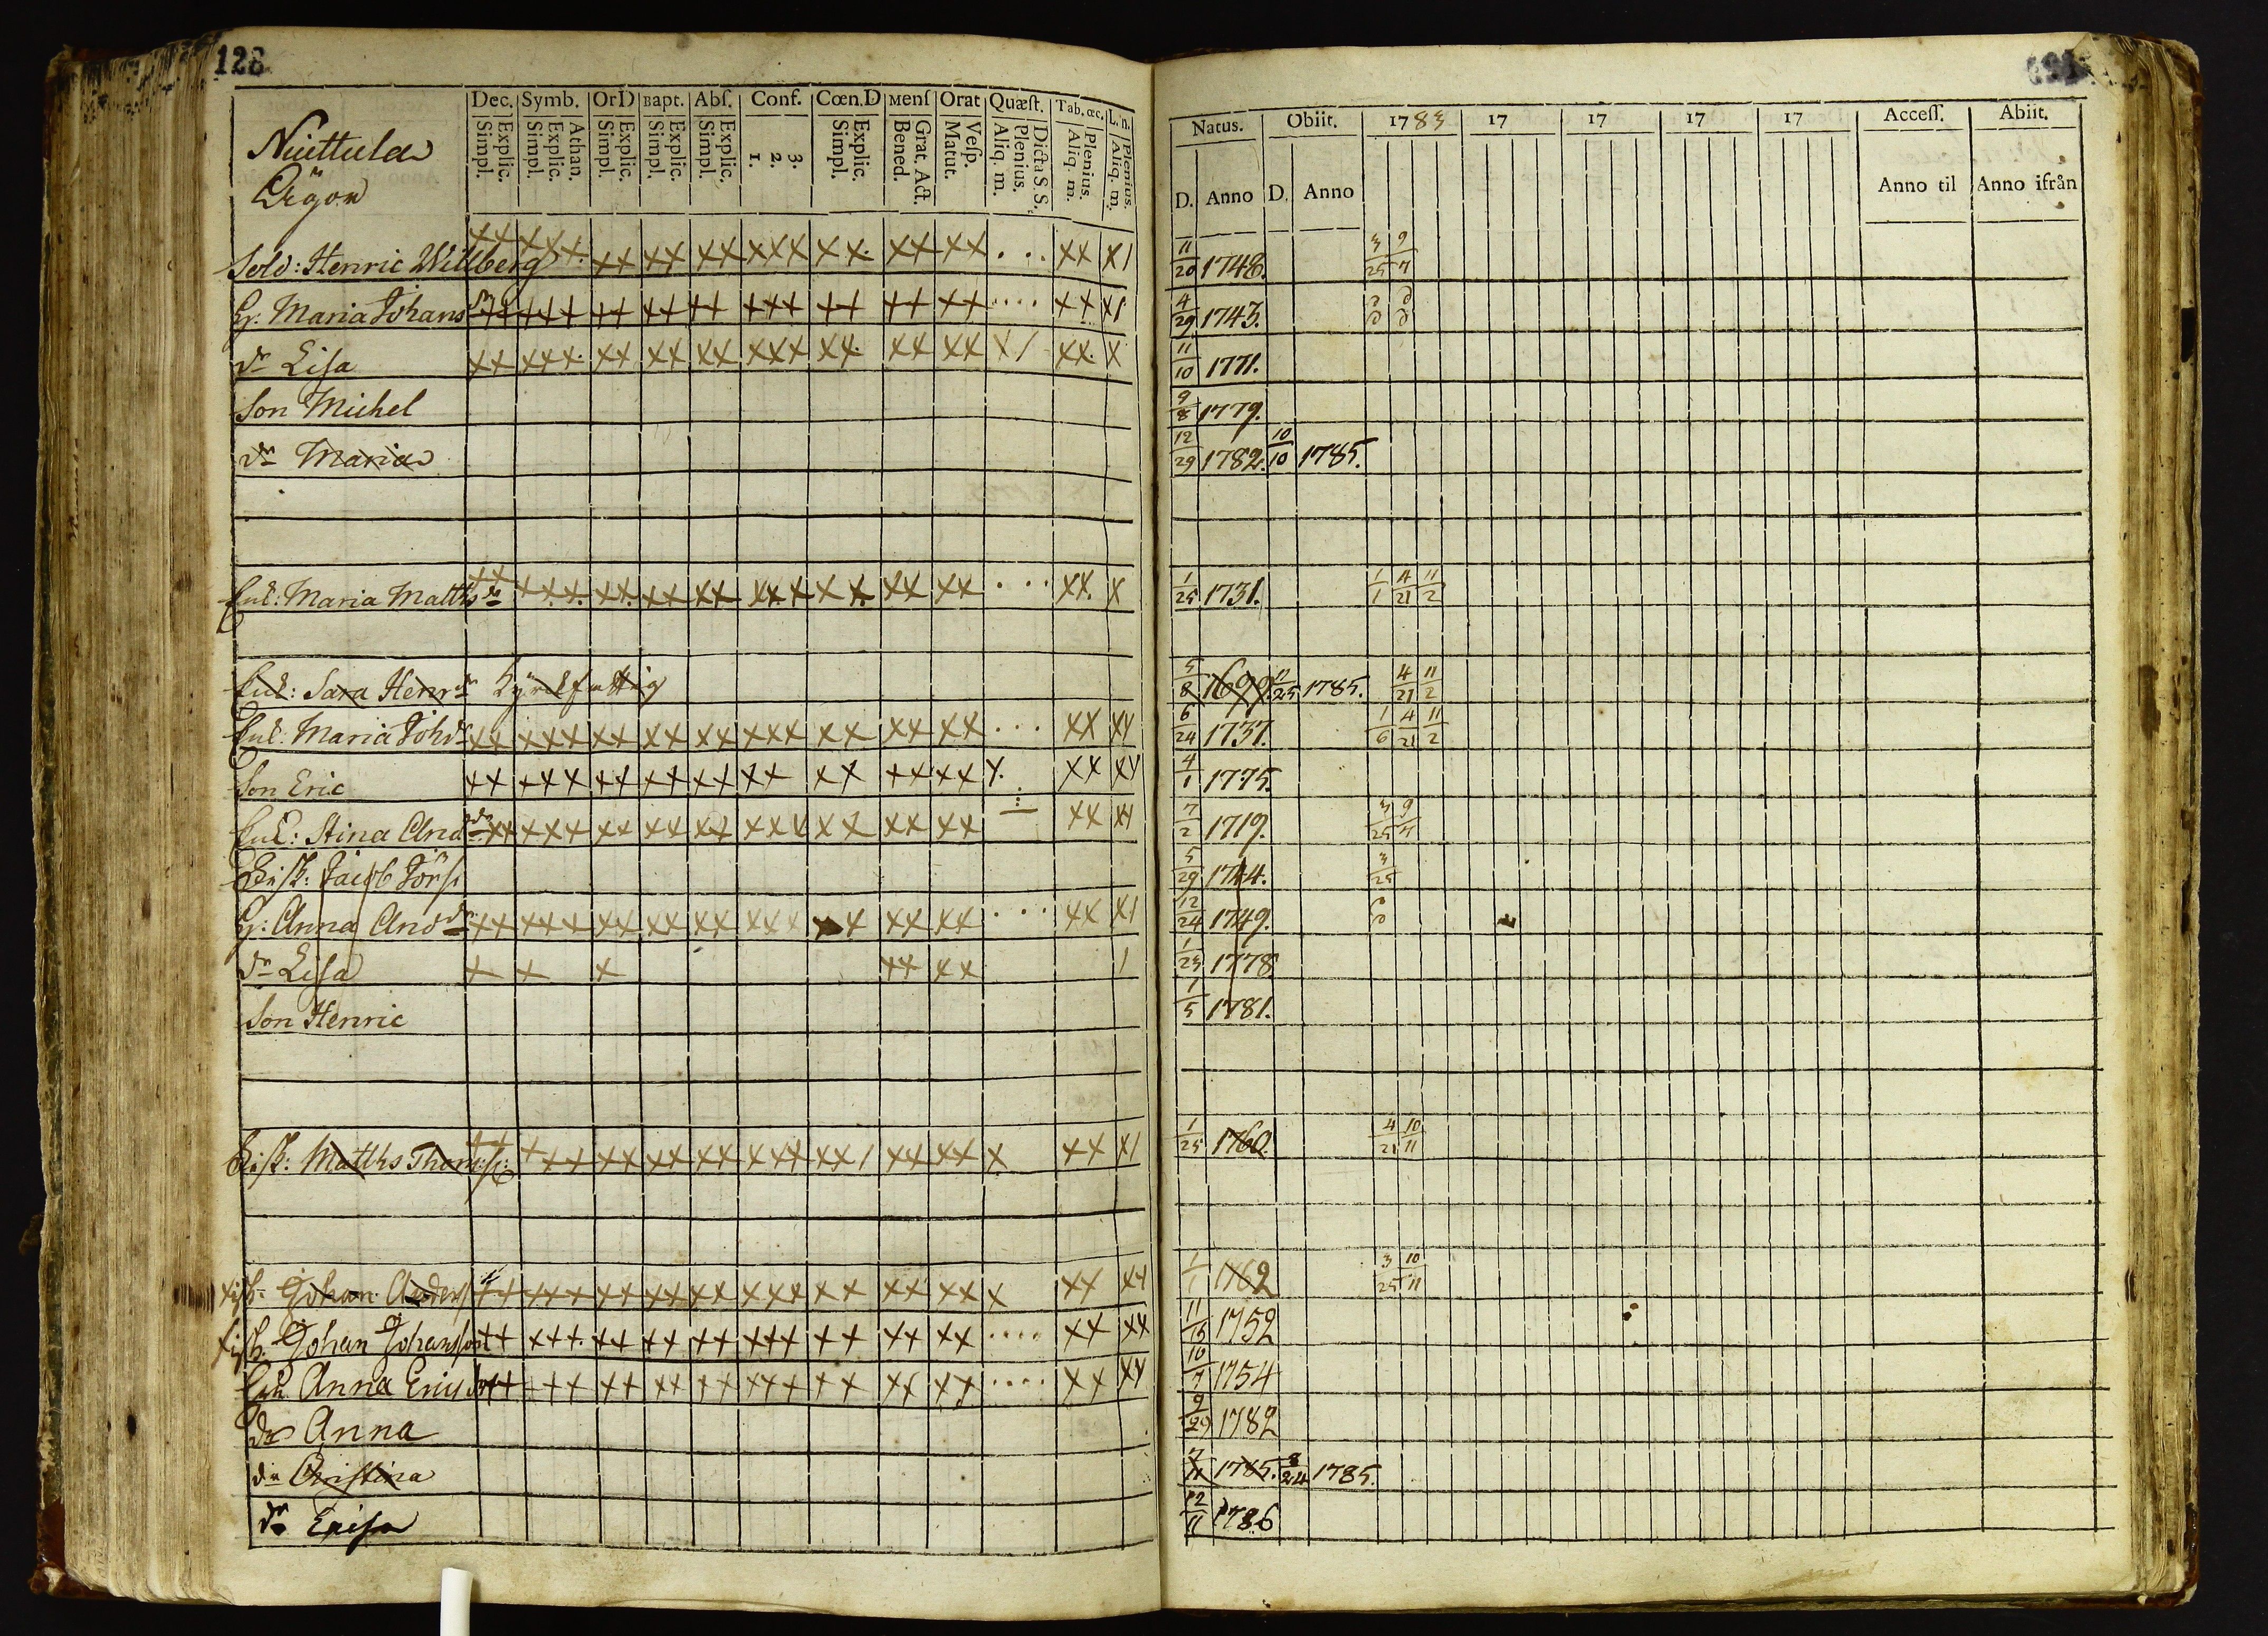 128
Dec. Symb. OrD Bapt. Abſ. Conf. Cœn.D Menſ Orat Quæſt. Tab. œc. L. n.
Explic. Simpl. Athan. Explic. Simpl. Explic. Simpl. Explic. Simpl. Explic. Simpl. 3. 2. 1. Explic. Simpl. Grat. Act. Bened. Veſp. Matut. Dicta S. S. Plenius. Aliq. m. Plenius. Aliq. m. Plenius. Aliq. m.
Natus. Obiit. 1783 17 17 17 17 Acceſſ. Abiit.
D. Anno D. Anno Anno til Anno ifrån
Niuttula
Ägor
Sold: Henric Willberg 11/20 1748. 3/25 9
H. Maria Johans dr 4/29 1743.
dr Lisa 11/10 1771.
Son Michel 9/8 1779.
dr Maria 12/29 1782. 10/10 1785.
Enk: Maria Matths dr 1/25 1731. 1/1 4/21 11/2
Enk: Sara Henr dr 5/8 1699. 11/25 1785. 4/21 11/2
Enk: Maria Joh dr 6/24 1737. 1/6 4/21 11/2
Son Eric 4/1 1775.
Enk: Stina And dr 7/2 1719. 3/25 9
Jacob Görs 5/29 1744. 3/25
H: Anna And dr 12/24 1749.
dr Lisa 1/23 1778
Son Henric 7/5 1781.
Matths Thom:s: 1/25 1760. 4/21 10/11
Johan Anders 1762 3/25 10/11
Johan Johansson 11/15 1752
Anna Erics dotter 10 1754
dr Anna 9/29 1782
dr Christina 1785. 8/24 1785.
dr 12/11 1786